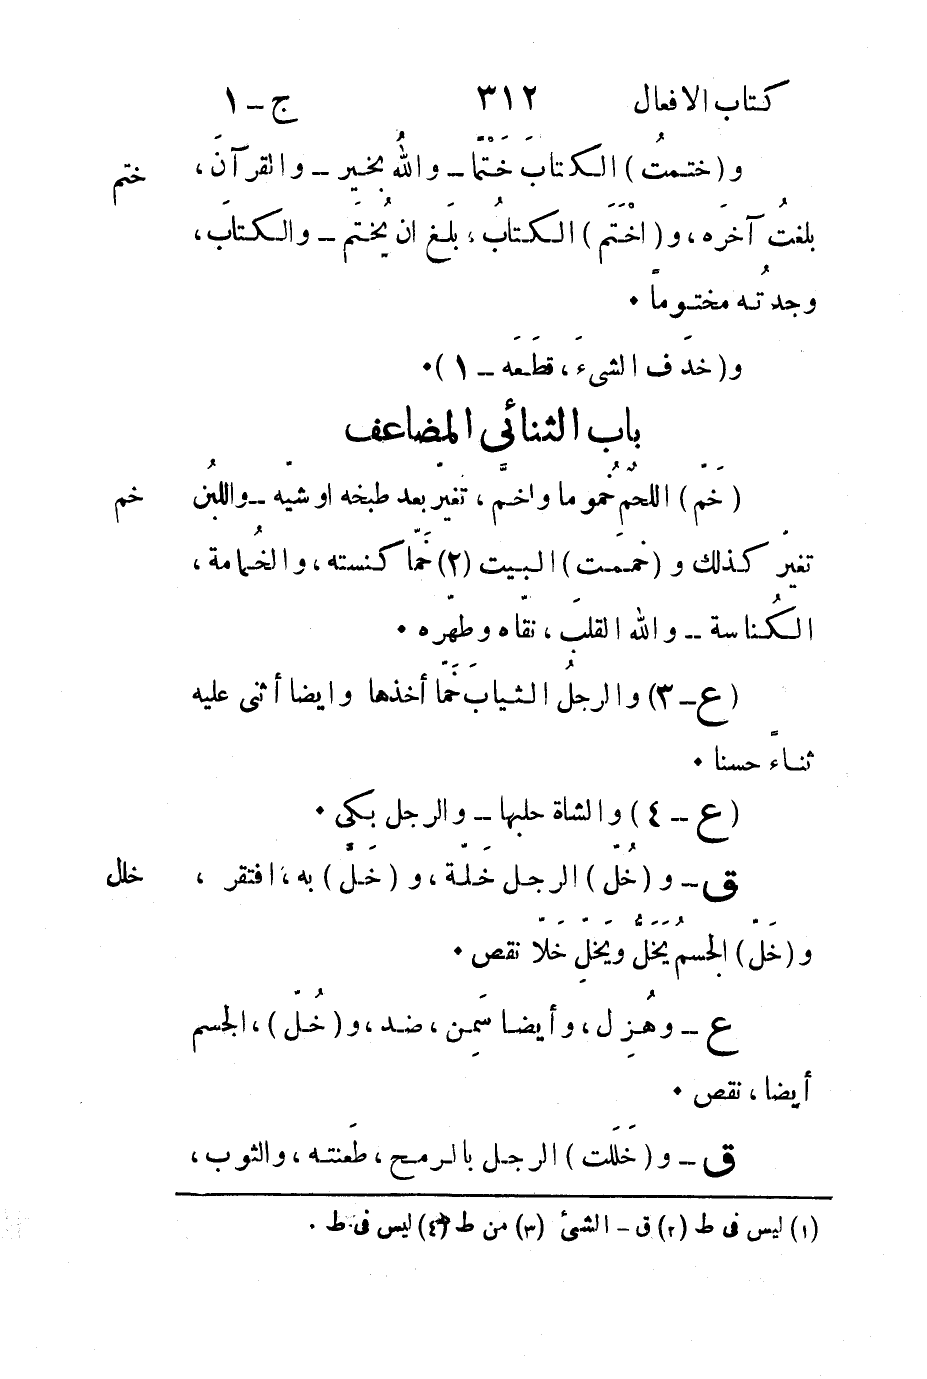 كتاب الافعال ٣١٢ ج - ١
و (ختمتُ) الكتابَ خَتْمًا - واللهُ بخير - والقرآنَ، ختم
بلغتُ آخرَه، و (اخْتَتَم) الكتابُ، بلَغ ان يُختَم - والكتابَ،
وجدتُه مختوماً •
و (خذَف الشىءَ، قطَعَه - ١) •
باب الثنائى المضاعف
(خَمّ) اللحمُ خُموما واخمّ، تغيّر بعد طبخه او شيّه - واللبنُ خم
تغيّر كذلك و (خممَت) البيت (٢) خَمّا كنسته، والخُمامة،
الكُناسة - والله القلبَ، نقّاه وطهّره •
(ع - ٣) والرجلُ الثيابَ خَمّا أخذها وايضا أثنى عليه
ثناءً حسنا •
(ع - ٤) والشاة حلبها - والرجل بكى •
ق - و (خُلّ) الرجل خَلّة، و (خَلّ) به، افتقر، خلل
و (خَلّ) الجسمُ يَخَلُّ ويَخِلّ خَلّا نقص •
ع - وهُزِل، وأيضا سَمِن، ضد، و (خُلّ)، الجسم
أيضا، نقص •
ق - و (خَلَلت) الرجل بالرمح، طَعنته، والثوب،
(١) ليس فى ط (٢) ق - الشئ (٣) من ط (٤) ليس فى ط .